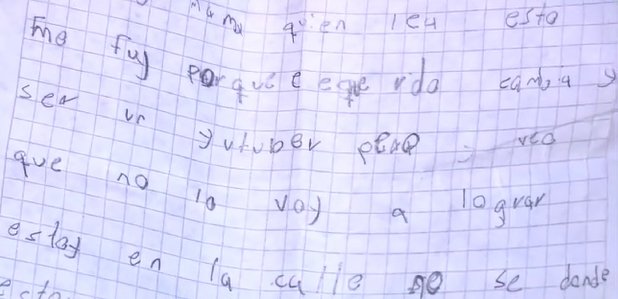 mama quien lea esto
me fuy porque e eqerido cambia y
ser un yutuber pero y veo
que no lo voy a lograr
estoy en la calle no se donde